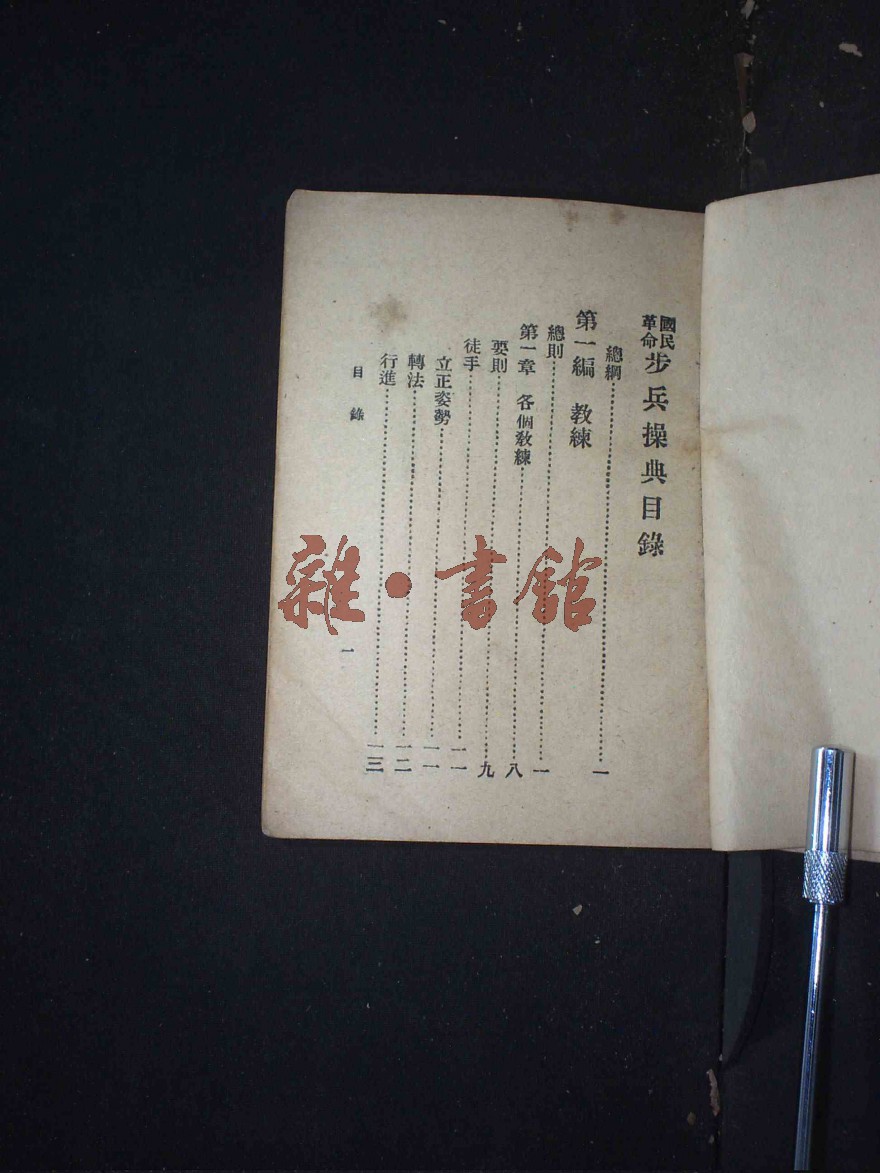 國民革命步兵操典目錄
總綱……一
第一編 教練
總則……一
第一章 各個教練……八
要則……九
徒手……一一
立正姿勢……一一
轉法……一二
行進……一三
目錄
一
雜·書館